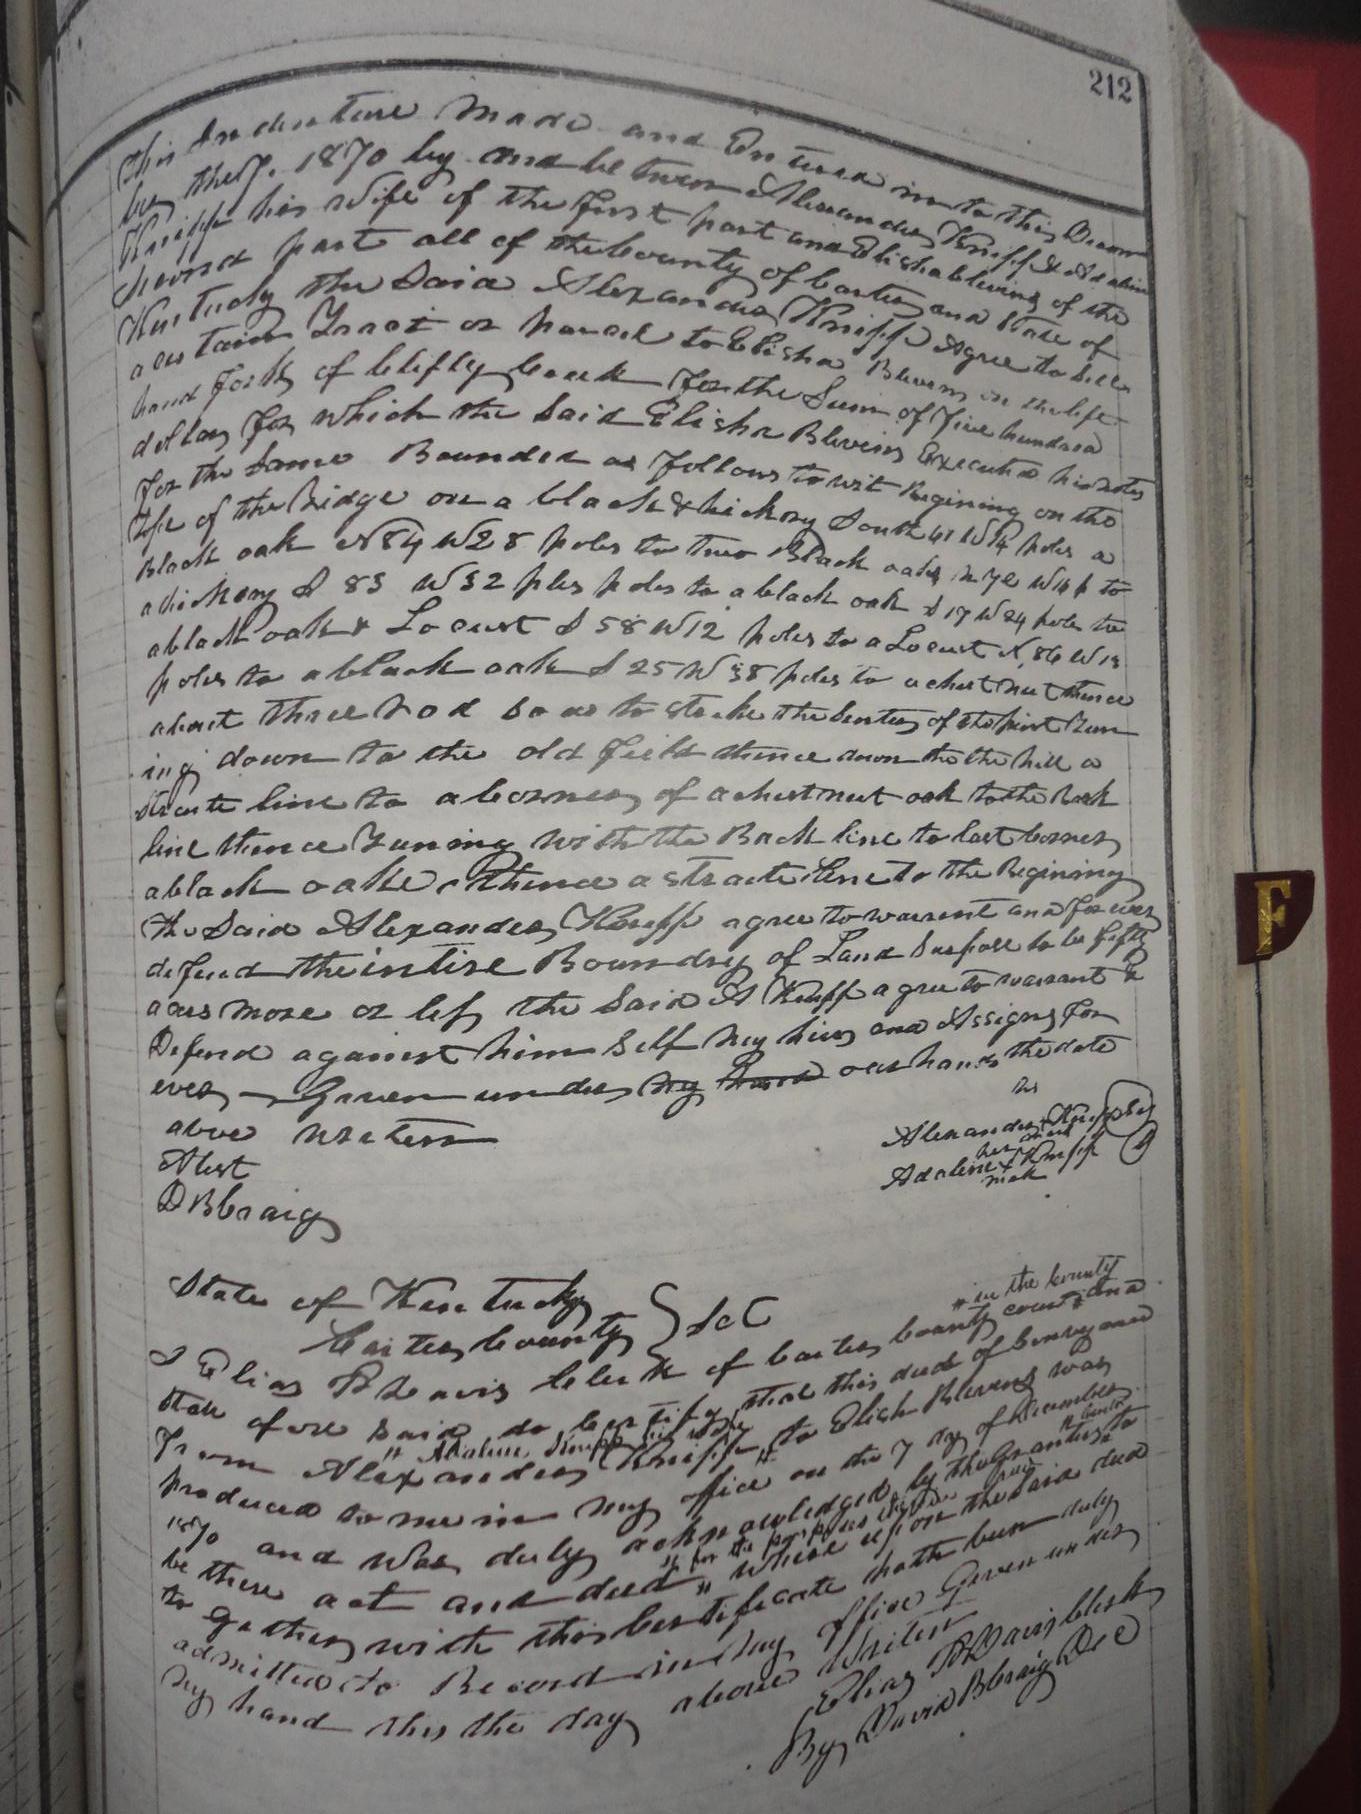 212
This Indenture Made and Entered in to this Decem
ber the 7. 1870 by and between Alexander Knipp & Adaline
Knipp his Wife of the first part and Elisha Blevins of the
Second part all of the County of Carter and State of
Kentucky the Said Alexander Knipp Agree to Sell
a certain Tract or parcel to Elisha Blevins on the left
hand fork of Clifty Creek for the Sum of five hundred
dollars for which the Said Elisha Blevins Executed his notes
for the Same Bounded as follows to wit Begining on the
top of the Ridge on a black & hickory South 41 W 14 poles a
Black oak N 84 W 28 poles to two Black oaks W 16 p to
a hickory S 83 W 32 ples poles to a black oak S 17 W 24 poles to
a black oak & Locust S 58 W 12 poles to a Locust N, 86 W 13
poles to a black oak S 25 W 38 poles to a chestnut thence
about three rod so as to stricke the Center of the point Runn
ing down to the old field thence down the the hill a
stracte line to a corner of a chestnut oak to the Back
line thence Runing with the Back line to last Corner
a black oake, thence a stracte line to the Begining
The Said Alexander Knipp agree to warrent and forever
defend the intire Boundry of Land Suspose to be fifty
acres more or less the Said A Knipp agree to warrant &
Defend against him self my hirs and Assigns for
ever, — Given under my hand our hands the date
above written
his
Alexander x Knipp
mark
her
Adaline x Knipp
mark
Atest
D B Craig
State of Kentucky
Carter County } Sct
I Elias P Davis Clerk of Carter County court and
" in the County
State afore said do certify that this deed of Conveyance
from Alexander Knipp " to Elish Blevens was
" Adaline Knipp his wife
produced to me in my office on the 7 day of December
1870 and was duly acknowledged by the Grantors to
be there act and deed " where upon the said deed
" for the purposes
to gether with this Certificate hath been duly
admitted to Record in my office Given under
my hand this the day above Writen
Elias P Davis Clerk
By David B Craig D C
F